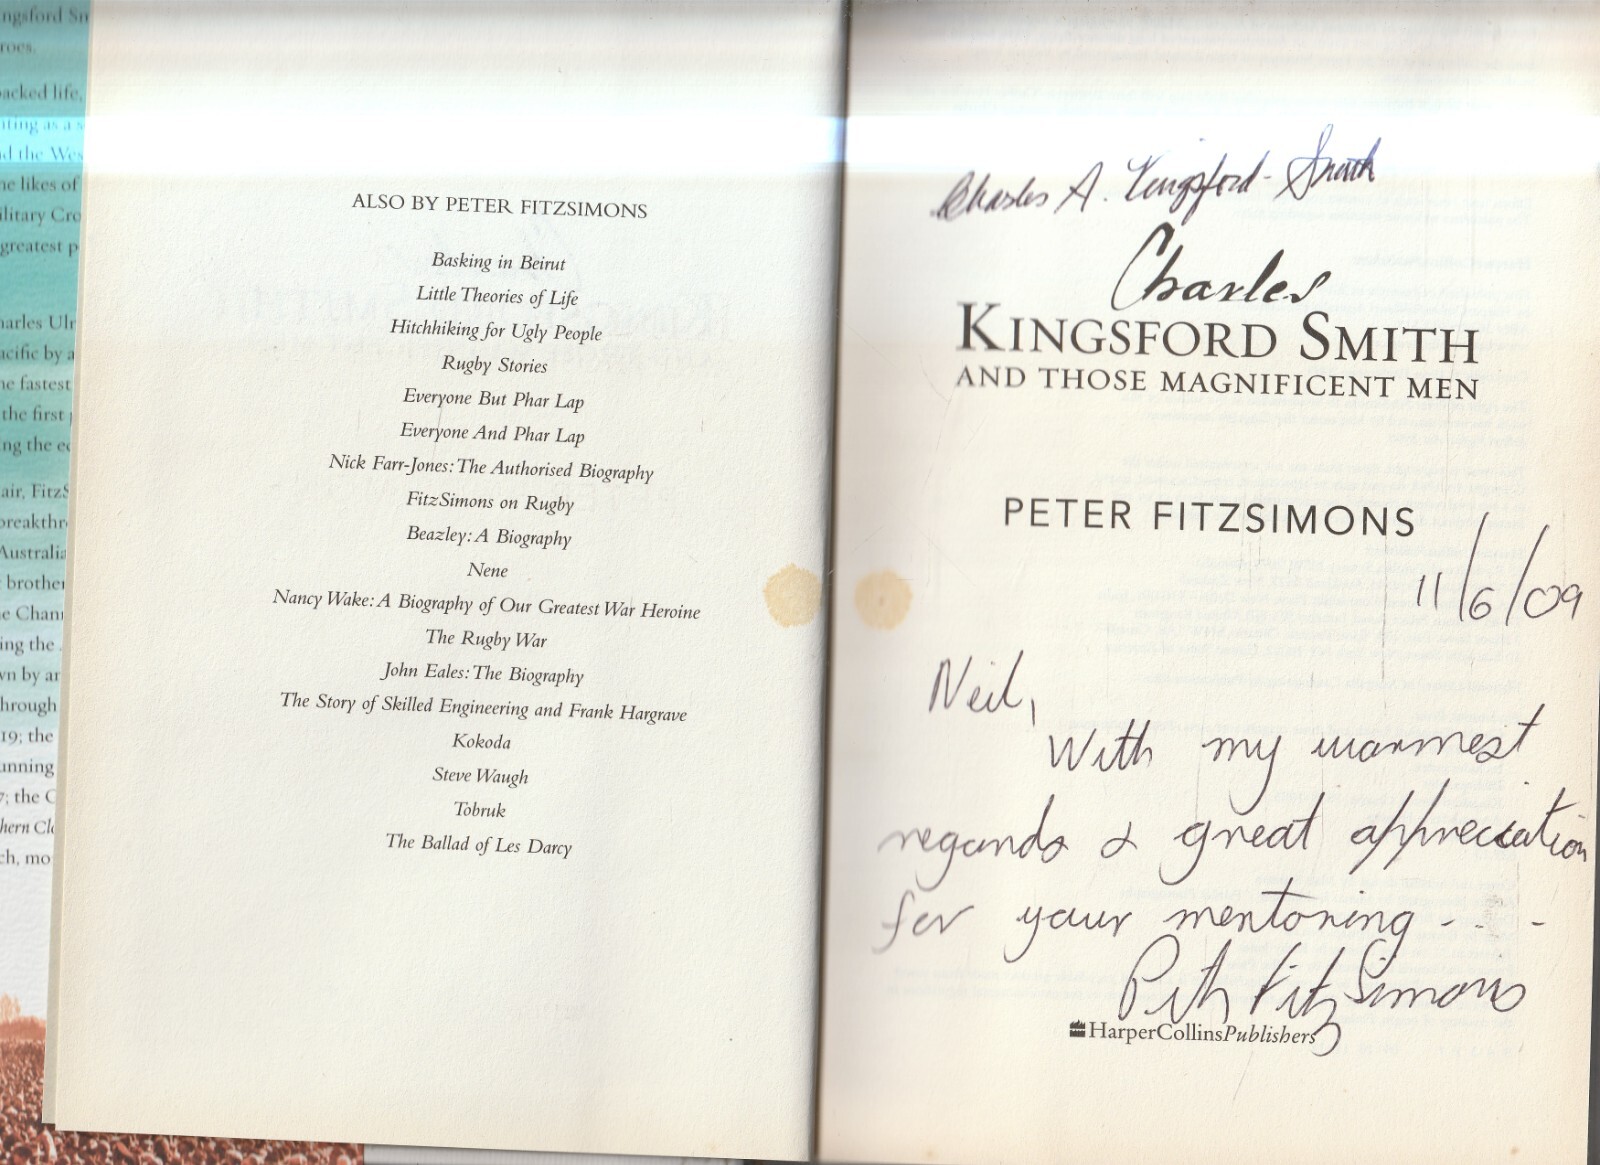 ngsford Sm
roes.
packed life,
nting as a s
nd the Wes
he likes of
ilitary Cro
greatest p
harles Ulr
acific by a
he fastest
the first
ng the ec
air, FitzS
breakthr
Australia
brother
e Chan
ing the
vn by ar
hrough
19; the
unning
7; the C
hern Cl
ch, mo
ALSO BY PETER FITZSIMONS
Basking in Beirut
Little Theories of Life
Hitchhiking for Ugly People
Rugby Stories
Everyone But Phar Lap
Everyone And Phar Lap
Nick Farr-Jones: The Authorised Biography
FitzSimons on Rugby
Beazley: A Biography
Nene
Nancy Wake: A Biography of Our Greatest War Heroine
The Rugby War
John Eales: The Biography
The Story of Skilled Engineering and Frank Hargrave
Kokoda
Steve Waugh
Tobruk
The Ballad of Les Darcy
Charles A. Kingsford-Smith
Charles
KINGSFORD SMITH
AND THOSE MAGNIFICENT MEN
PETER FITZSIMONS
11/6/09
Neil,
With my warmest
regards & great appreciation
for your mentoring - - - -
Peter FitzSimons
HarperCollinsPublishers